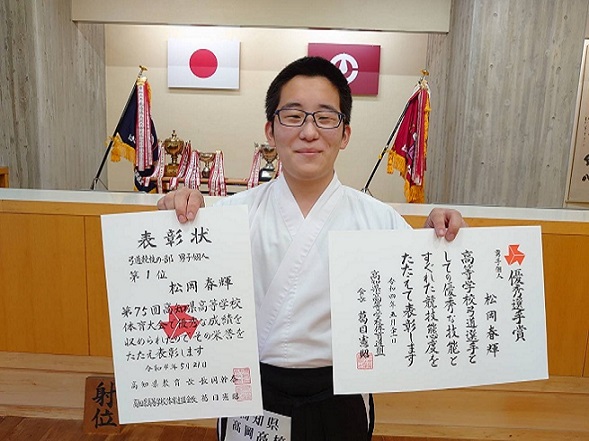 表彰状
弓道競技の部 男子個人
第1位
松岡春輝
第75回高知県高等学校
体育大会で優秀な成績を
収められたのでその栄誉を
たたえ表彰します
令和4年5月21日
高知県教育長 長岡幹泰
優秀選手賞
男子個人
松岡春輝
高等学校弓道選手と
しての優秀な技能と
すぐれた競技態度を
たたえて表彰します
令和四年五月二一日
高知県高等学校体育連盟
会長
射位
高知県
高岡高校